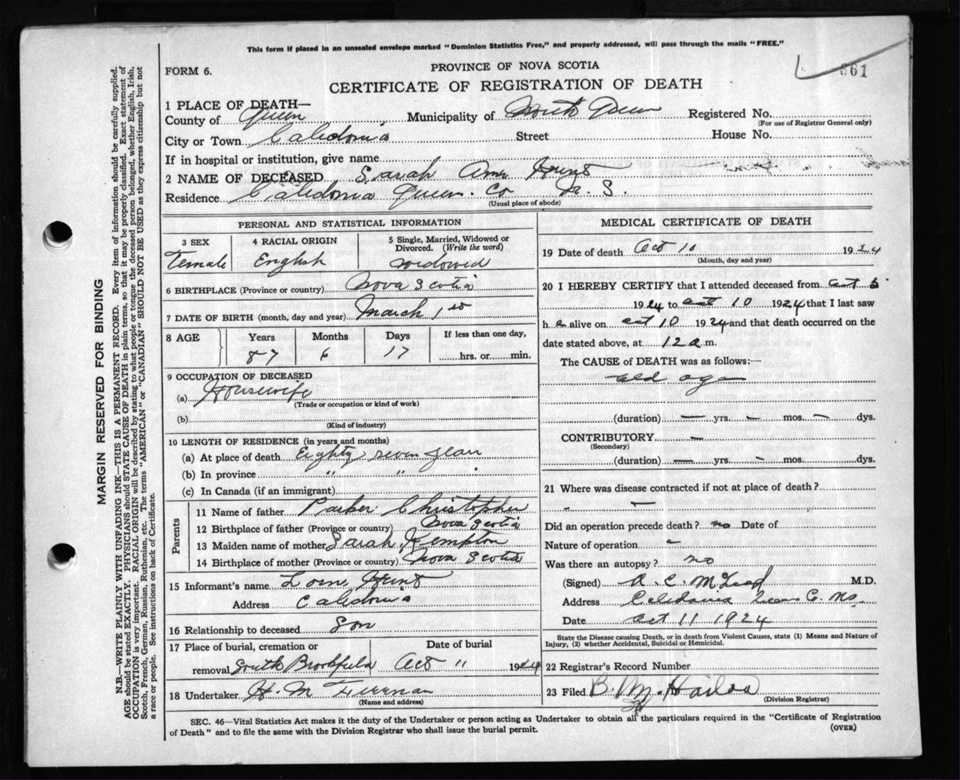 This form if placed in an unsealed envelope marked "Dominion Statistics Free," and properly addressed, will pass through the mails "FREE."
FORM 6.
PROVINCE OF NOVA SCOTIA
CERTIFICATE OF REGISTRATION OF DEATH
661
1 PLACE OF DEATH—
County of Queen Municipality of North Queen Registered No.
(For use of Registrar General only)
City or Town Caledonia Street House No.
If in hospital or institution, give name
2 NAME OF DECEASED Sarah Ann
Residence Caledonia Queen. Co N. S.
(Usual place of abode)
PERSONAL AND STATISTICAL INFORMATION
3 SEX
Female
4 RACIAL ORIGIN
English
5 Single, Married, Widowed or Divorced. (Write the word)
widowed
6 BIRTHPLACE (Province or country) Nova Scotia
7 DATE OF BIRTH (month, day and year) March 1
8 AGE Years Months Days If less than one day,
87 6 17 hrs. or min.
9 OCCUPATION OF DECEASED
(a) Housewife
(Trade or occupation or kind of work)
(b)
(Kind of industry)
10 LENGTH OF RESIDENCE (in years and months)
(a) At place of death Eighty seven years
(b) In province " " "
(c) In Canada (if an immigrant)
Parents
11 Name of father Parker Christopher
12 Birthplace of father (Province or country) Nova Scotia
13 Maiden name of mother Sarah Kempton
14 Birthplace of mother (Province or country) Nova Scotia
15 Informant's name
Address Caledonia
16 Relationship to deceased Son
17 Place of burial, cremation or removal South Brookfield
Date of burial Oct 11 1924
18 Undertaker H. M
(Name and address)
MEDICAL CERTIFICATE OF DEATH
19 Date of death Oct 10 1924
(Month, day and year)
20 I HEREBY CERTIFY that I attended deceased from Oct 6
1924 to Oct 10 1924 that I last saw
h alive on Oct 10 1924 and that death occurred on the
date stated above, at 12 a m.
The CAUSE of DEATH was as follows:—
old age
(duration) — yrs. — mos. — dys.
CONTRIBUTORY —
(Secondary)
(duration) — yrs. — mos. — dys.
21 Where was disease contracted if not at place of death?
" —
Did an operation precede death? no Date of
Nature of operation –
Was there an autopsy? no
(Signed) M.D.
Address Caledonia Queens Co. NS.
Date Oct 11 1924
State the Disease causing Death, or in death from Violent Causes, state (1) Means and Nature of
Injury, (2) whether Accidental, Suicidal or Homicidal.
22 Registrar's Record Number
23 Filed
(Division Registrar)
SEC. 46—Vital Statistics Act makes it the duty of the Undertaker or person acting as Undertaker to obtain all the particulars required in the "Certificate of Registration
of Death" and to file the same with the Division Registrar who shall issue the burial permit.
(OVER)
MARGIN RESERVED FOR BINDING
N.B.—WRITE PLAINLY WITH UNFADING INK—THIS IS A PERMANENT RECORD. Every item of information should be carefully supplied.
AGE should be stated EXACTLY. PHYSICIANS should STATE CAUSE OF DEATH in plain terms, so that it may be properly classified. Exact statement of
OCCUPATION is very important. RACIAL ORIGIN will be described by stating to what people or tongue the deceased person belonged, whether English, Irish,
Scotch, French, German, Russian, Ruthenian, etc. The terms "AMERICAN" or "CANADIAN" SHOULD NOT BE USED as they express citizenship but not
a race or people. See instructions on back of Certificate.